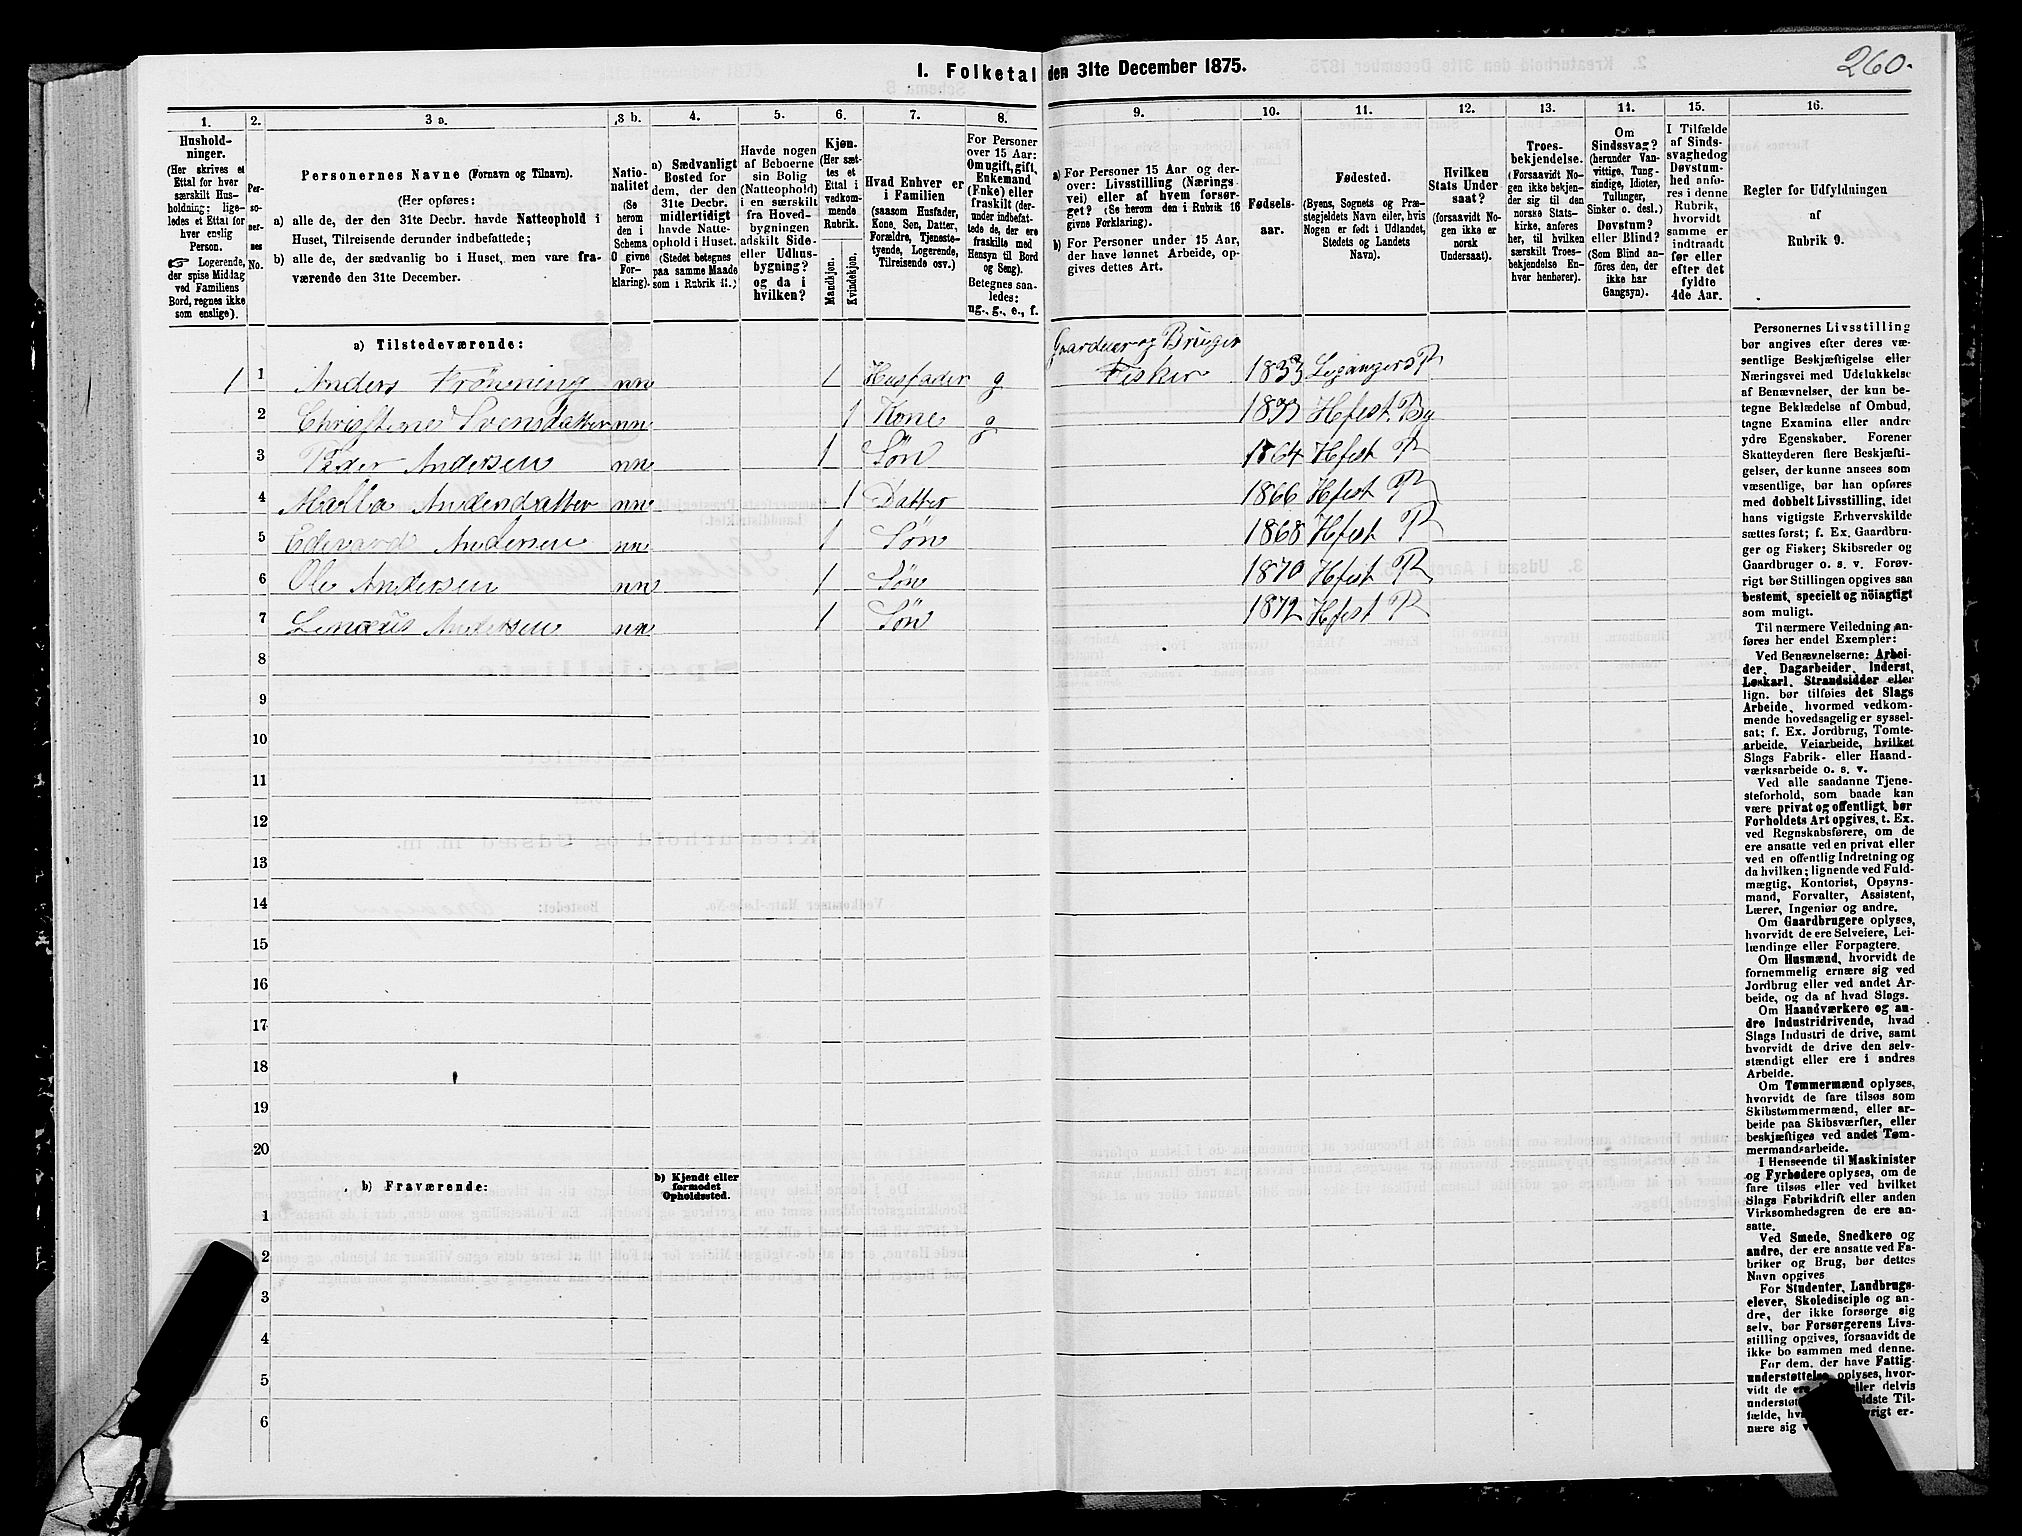 I. Folketal den 31te December 1875.
260.
1.
2.
3 a.
3 b.
4.
5.
6.
7.
8.
9.
10.
11.
12.
13.
14.
15.
16.
Hushold-
ninger.
(Her skrives et
Ettal for hver
særskilt Hus-
holdning; lige-
ledes et Ettal for
hver enslig
Person.
☞ Logerende,
der spise Middag
ved Familiens
Bord, regnes ikke
som enslige).
Per-
so-
ner-
nes
No.
Personernes Navne (Fornavn og Tilnavn).
(Her opføres:
a) alle de, der den 31te Decbr. havde Natteophold i
Huset, Tilreisende derunder indbefattede;
b) alle de, der sædvanlig bo i Huset, men vare fra-
værende den 31te December.
Natio-
nalitet
(Se
herom
den i
Schema
O givne
For-
klaring).
a) Sædvanligt
Bosted for
dem, der den
31te Decbr.
midlertidigt
havde Natte-
ophold i Huset.
(Stedet betegnes
paa samme Maade
som i Rubrik 11.)
Havde nogen
af Beboerne
sin Bolig
(Natteophold)
i en særskilt
fra Hoved-
bygningen
adskilt Side-
eller Udhus-
bygning?
og da i
hvilken?
Kjøn.
(Her sæt-
tes et
Ettal i
vedkom-
mende
Rubrik.
Mandkjøn.
Kvindekjøn.
Hvad Enhver er
i Familien
(saasom Husfader,
Kone, Søn, Datter,
Forældre, Tjeneste-
tyende, Logerende,
Tilreisende osv.)
For Personer
over 15 Aar:
Om ugift, gift,
Enkemand
(Enke) eller
fraskilt (der-
under indbefat-
tede de, der ere
fraskilte med
Hensyn til Bord
og Seng).
Betegnes saa-
ledes:
ug., g., e., f.
a) For Personer 15 Aar og der-
over: Livsstilling (Nærings-
vei) eller af hvem forsør-
get? (Se herom den i Rubrik 16
givne Forklaring).
b) For Personer under 15 Aar,
der have lønnet Arbeide, op-
gives dettes Art.
Fødsels-
aar.
Fødested.
(Byens, Sognets og Præ-
stegjeldets Navn eller, hvis
Nogen er født i Udlandet,
Stedets og Landets
Navn).
Hvilken
Stats Under-
saat?
(forsaavidt No-
gen ikke er
norsk
Undersaat).
Troes-
bekjendelse.
(Forsaavidt No-
gen ikke bekjen-
der sig til den
norske Stats-
kirke, anføres
her, til hvilken
særskilt Troes-
bekjendelse En-
hver henhører).
Om
Sindssvag?
(herunder Van-
vittige, Tung-
sindige, Idioter,
Sinker o. desl.)
Døvstum?
eller Blind?
(Som Blind an-
føres den, der
ikke har
Gangsyn).
I Tilfælde
af Sinds-
svaghed og
Døvstum-
hed anfø-
res i denne
Rubrik,
hvorvidt
samme er
indtraadt
før eller
efter det
fyldte
4de Aar.
Regler for Udfyldningen
af
Rubrik 9.
a) Tilstedeværende:
Gaardeier og Bruger
1 1 Anders Frönning nn 1 Husfader g Fisker 1833 Leganger P
2 Christene Svensdatter nn 1 Kone g Hfest. By
3 Peder Andersen nn 1 Søn 1864 Hfest P
4 Malla Andersdatter nn 1 Datter 1866 Hfest P
5 Edevard Andersen nn 1 Søn 1868 Hfest P
6 Ole Andersen nn 1 Søn 1870 Hfest P
7 Andersen nn 1 Søn 1872 Hfest P
8
9
10
11
12
13
14
15
16
17
18
19
20
b) Fraværende:
b) Kjendt eller
formodet
Opholdssted.
1
2
3
4
5
6
Personernes Livsstilling
bør angives efter deres væ-
sentlige Beskjæftigelse eller
Næringsvei med Udelukkelse
af Benævnelser, der kun be-
tegne Beklædelse af Ombud,
tagne Examina eller andre
ydre Egenskaber. Forener
Skatteyderen flere Beskjæfti-
gelser, der kunne ansees som
væsentlige, bør han opføres
med dobbelt Livsstilling, idet
hans vigtigste Erhvervskilde
sættes først; f. Ex. Gaardbru-
ger og Fisker; Skibsreder og
Gaardbruger o. s. v. Forøv-
rigt bør Stillingen opgives saa
bestemt, specielt og nöiagtigt
som muligt.
Til nærmere Veiledning an-
føres her endel Exempler:
Ved Benævnelserne: Arbei-
der, Dagarbeider, Inderst,
Løskarl, Strandsidder eller
lign. bør tilføies det Slags
Arbeide, hvormed vedkom-
mende hovedsagelig er syssel-
sat; f. Ex. Jordbrug, Tomte-
arbeide, Veiarbeide, hvilket
Slags Fabrik- eller Haand-
værksarbeide o. s. v.
Ved alle saadanne Tjene-
steforhold, som baade kan
være privat og offentligt, bør
Forholdets Art opgives, t. Ex.
ved Regnskabsførere, om de
ere ansatte ved en privat eller
ved en offentlig Indretning og
da hvilken; lignende ved Fuld-
mægtig, Kontorist, Opsyns-
mand, Forvalter, Assistent,
Lærer, Ingeniør og andre.
Om Gaardbrugere oplyses,
hvorvidt de ere Selveiere, Lei-
lændinge eller Forpagtere.
Om Husmænd, hvorvidt de
fornemmelig ernære sig ved
Jordbrug eller ved andet Ar-
beide, og da af hvad Slags.
Om Haandværkere og an-
dre Industridrivende, hvad
Slags Industri de drive, samt
hvorvidt de drive den selv-
stændigt eller ere i andres
Arbeide.
Om Tømmermænd oplyses,
hvorvidt de fare tilsøs som
Skibstømmermænd, eller ar-
beide paa Skibsværfter, eller
beskjæftiges ved andet Tøm-
mermandsarbeide.
I Henseende til Maskinister
og Fyrbødere oplyses, om de
fare tilsøs eller ved hvilket
Slags Fabrikdrift eller anden
Virksomhedsgren de ere an-
satte.
Ved Smede, Snedkere og
andre, der ere ansatte ved Fa-
briker og Brug, bør dettes
Navn opgives
For Studenter, Landbrugs-
elever, Skoledisciple og an-
dre, der ikke forsørge sig
selv, bør Forsørgerens Livs-
stilling opgives, forsaavidt de
ikke bo sammen med denne.
For dem, der have Fattig-
understøttelse, oplyses, hvor-
vidt de ere eller delvis
understøt idste Til-
fælde, hv vrigt er-
nære sig v